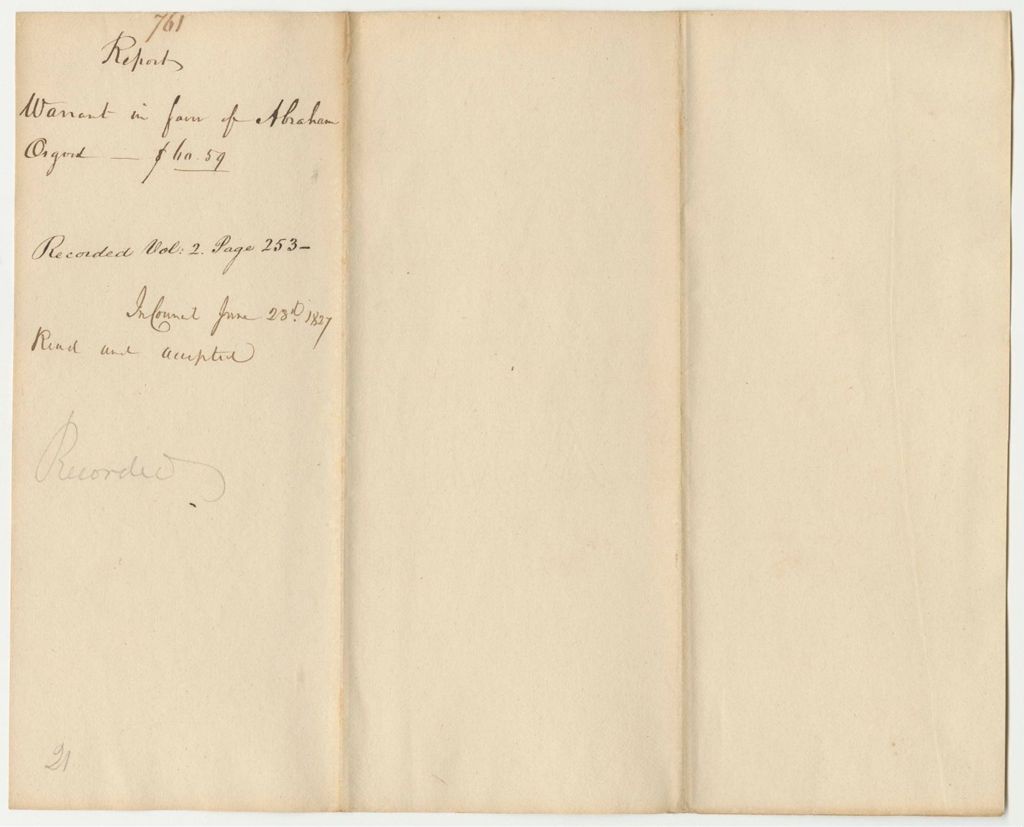 761
Report
Warrant in favor of Abraham
Osgood — $60.59
Recorded Vol: 2. Page 253–
In Council June 23d. 1827
Read and accepted
Recorded
21